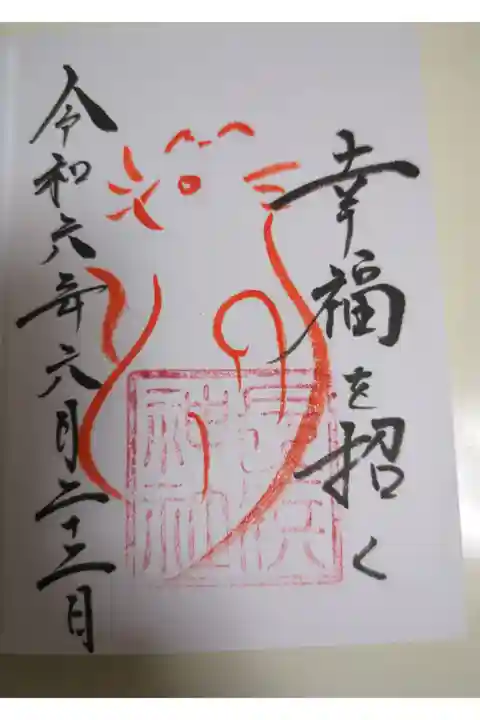 幸福を招く
神社
令和六年六月二十二日